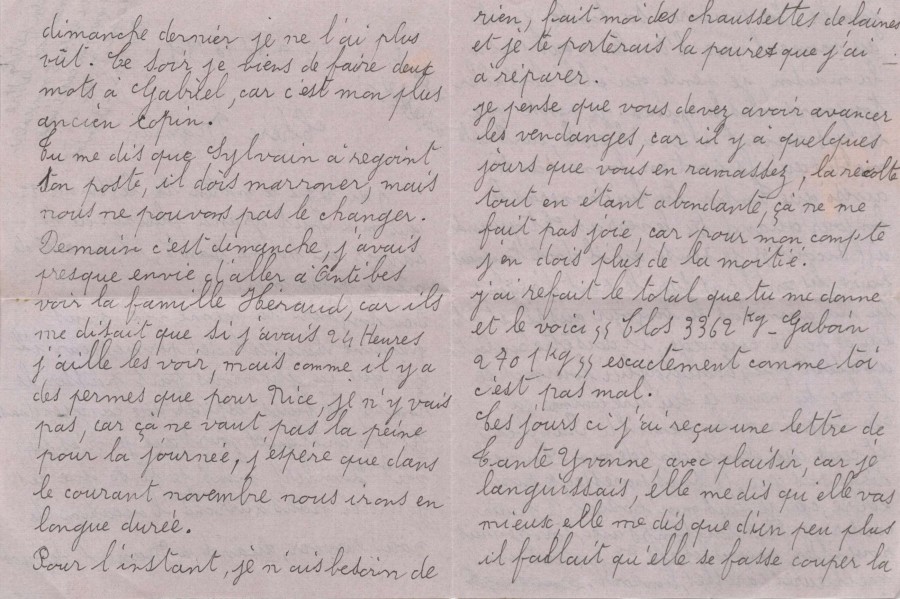 dimanche dernier je ne l'ai plus
vût. Ce soir je viens de faire deux
mots à Gabriel, car c'est mon plus
ancien copin.
Tu me dis que Sylvain à regoint
son poste, il dois marroner, mais
nous ne pouvons pas le changer.
Demain c'est dimanche, j'avais
presque envie d'aller à Antibes
voir la famille Héraud, car ils
me disait que si j'avais 24 Heures
j'aille les voir, mais comme il y a
des permes que pour Nice, je n'y vais
pas, car çà ne vaut pas la peine
pour la journée, j'espère que dans
le courant novembre nous irons en
longue durée.
Pour l'instant, je n'ais besoin de
rien, fait moi des chaussettes de laines
et je te porterais la paire que j'ai
à réparer.
je pense que vous devez avoir avancer
les vendanges, car il y à quelques
jours que vous en ramassez, la récolte
tout en étant abondante, çà ne me
fait pas joie, car pour mon compte
j'en dois plus de la moitié.
j'ai refait le total que tu me donne
et le voici "Clos 3362 kg - Gaboin
2701 kg" escactement comme toi
c'est pas mal.
Ces jours ci j'ai reçu une lettre de
Tante Yvonne, avec plaisir, car je
languissais, elle me dis qu'elle vas
mieux, elle me dis que d'un peu plus
il fallait qu'elle se fasse couper la